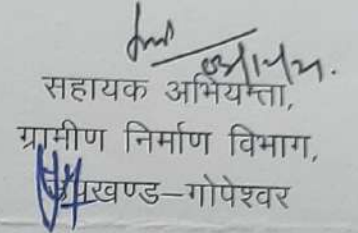 सहायक अभियन्ता,
ग्रामीण निर्माण विभाग,
उपखण्ड–गोपेश्वर